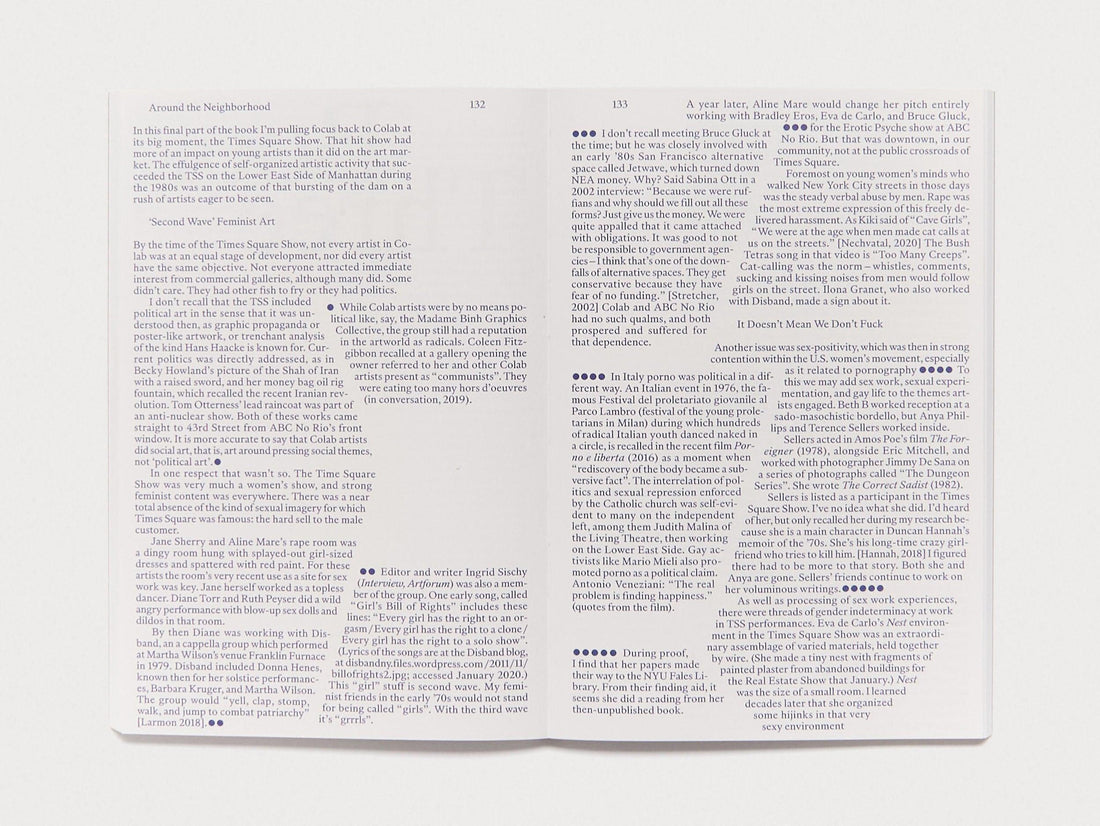 Around the Neighborhood
132
In this final part of the book I'm pulling focus back to Colab at
its big moment, the Times Square Show. That hit show had
more of an impact on young artists than it did on the art mar-
ket. The effulgence of self-organized artistic activity that suc-
ceeded the TSS on the Lower East Side of Manhattan during
the 1980s was an outcome of that bursting of the dam on a
rush of artists eager to be seen.
‘Second Wave’ Feminist Art
By the time of the Times Square Show, not every artist in Co-
lab was at an equal stage of development, nor did every artist
have the same objective. Not everyone attracted immediate
interest from commercial galleries, although many did. Some
didn't care. They had other fish to fry or they had politics.
I don't recall that the TSS included
political art in the sense that it was un-
derstood then, as graphic propaganda or
poster-like artwork, or trenchant analysis
of the kind Hans Haacke is known for. Cur-
rent politics was directly addressed, as in
Becky Howland's picture of the Shah of Iran
with a raised sword, and her money bag oil rig
fountain, which recalled the recent Iranian rev-
olution. Tom Otterness' lead raincoat was part of
an anti-nuclear show. Both of these works came
straight to 43rd Street from ABC No Rio's front
window. It is more accurate to say that Colab artists
did social art, that is, art around pressing social themes,
not ‘political art’.●
In one respect that wasn't so. The Time Square
Show was very much a women's show, and strong
feminist content was everywhere. There was a near
total absence of the kind of sexual imagery for which
Times Square was famous: the hard sell to the male
customer.
Jane Sherry and Aline Mare's rape room was
a dingy room hung with splayed-out girl-sized
dresses and spattered with red paint. For these
artists the room's very recent use as a site for sex
work was key. Jane herself worked as a topless
dancer. Diane Torr and Ruth Peyser did a wild
angry performance with blow-up sex dolls and
dildos in that room.
By then Diane was working with Dis-
band, an a cappella group which performed
at Martha Wilson's venue Franklin Furnace
in 1979. Disband included Donna Henes,
known then for her solstice performanc-
es, Barbara Kruger, and Martha Wilson.
The group would “yell, clap, stomp,
walk, and jump to combat patriarchy”
[Larmon 2018].●●
● While Colab artists were by no means po-
litical like, say, the Madame Binh Graphics
Collective, the group still had a reputation
in the artworld as radicals. Coleen Fitz-
gibbon recalled at a gallery opening the
owner referred to her and other Colab
artists present as “communists”. They
were eating too many hors d'oeuvres
(in conversation, 2019).
●● Editor and writer Ingrid Sischy
(Interview, Artforum) was also a mem-
ber of the group. One early song, called
“Girl's Bill of Rights” includes these
lines: “Every girl has the right to an or-
gasm / Every girl has the right to a clone /
Every girl has the right to a solo show”.
(Lyrics of the songs are at the Disband blog,
at disbandny.files.wordpress.com/2011/11/
billofrights2.jpg; accessed January 2020.)
This “girl” stuff is second wave. My femi-
nist friends in the early '70s would not stand
for being called “girls”. With the third wave
it's “grrrls”.
133
A year later, Aline Mare would change her pitch entirely
working with Bradley Eros, Eva de Carlo, and Bruce Gluck,
●●● for the Erotic Psyche show at ABC
No Rio. But that was downtown, in our
community, not at the public crossroads of
Times Square.
Foremost on young women's minds who
walked New York City streets in those days
was the steady verbal abuse by men. Rape was
the most extreme expression of this freely de-
livered harassment. As Kiki said of “Cave Girls”,
“We were at the age when men made cat calls at
us on the streets.” [Nechvatal, 2020] The Bush
Tetras song in that video is “Too Many Creeps”.
Cat-calling was the norm – whistles, comments,
sucking and kissing noises from men would follow
girls on the street. Ilona Granet, who also worked
with Disband, made a sign about it.
It Doesn't Mean We Don't Fuck
Another issue was sex-positivity, which was then in strong
contention within the U.S. women's movement, especially
as it related to pornography ●●●● To
this we may add sex work, sexual experi-
mentation, and gay life to the themes art-
ists engaged. Beth B worked reception at a
sado-masochistic bordello, but Anya Phil-
lips and Terence Sellers worked inside.
Sellers acted in Amos Poe's film The For-
eigner (1978), alongside Eric Mitchell, and
worked with photographer Jimmy De Sana on
a series of photographs called “The Dungeon
Series”. She wrote The Correct Sadist (1982).
Sellers is listed as a participant in the Times
Square Show. I've no idea what she did. I'd heard
of her, but only recalled her during my research be-
cause she is a main character in Duncan Hannah's
memoir of the '70s. She's his long-time crazy girl-
friend who tries to kill him. [Hannah, 2018] I figured
there had to be more to that story. Both she and
Anya are gone. Sellers' friends continue to work on
her voluminous writings.●●●●●
As well as processing of sex work experiences,
there were threads of gender indeterminacy at work
in TSS performances. Eva de Carlo's Nest environ-
ment in the Times Square Show was an extraordi-
nary assemblage of varied materials, held together
by wire. (She made a tiny nest with fragments of
painted plaster from abandoned buildings for
the Real Estate Show that January.) Nest
was the size of a small room. I learned
decades later that she organized
some hijinks in that very
sexy environment
●●● I don't recall meeting Bruce Gluck at
the time; but he was closely involved with
an early '80s San Francisco alternative
space called Jetwave, which turned down
NEA money. Why? Said Sabina Ott in a
2002 interview: “Because we were ruf-
fians and why should we fill out all these
forms? Just give us the money. We were
quite appalled that it came attached
with obligations. It was good to not
be responsible to government agen-
cies – I think that's one of the down-
falls of alternative spaces. They get
conservative because they have
fear of no funding.” [Stretcher,
2002] Colab and ABC No Rio
had no such qualms, and both
prospered and suffered for
that dependence.
●●●● In Italy porno was political in a dif-
ferent way. An Italian event in 1976, the fa-
mous Festival del proletariato giovanile al
Parco Lambro (festival of the young prole-
tarians in Milan) during which hundreds
of radical Italian youth danced naked in
a circle, is recalled in the recent film Por-
no e liberta (2016) as a moment when
“rediscovery of the body became a sub-
versive fact”. The interrelation of pol-
itics and sexual repression enforced
by the Catholic church was self-evi-
dent to many on the independent
left, among them Judith Malina of
the Living Theatre, then working
on the Lower East Side. Gay ac-
tivists like Mario Mieli also pro-
moted porno as a political claim.
Antonio Veneziani: “The real
problem is finding happiness.”
(quotes from the film).
●●●●● During proof,
I find that her papers made
their way to the NYU Fales Li-
brary. From their finding aid, it
seems she did a reading from her
then-unpublished book.